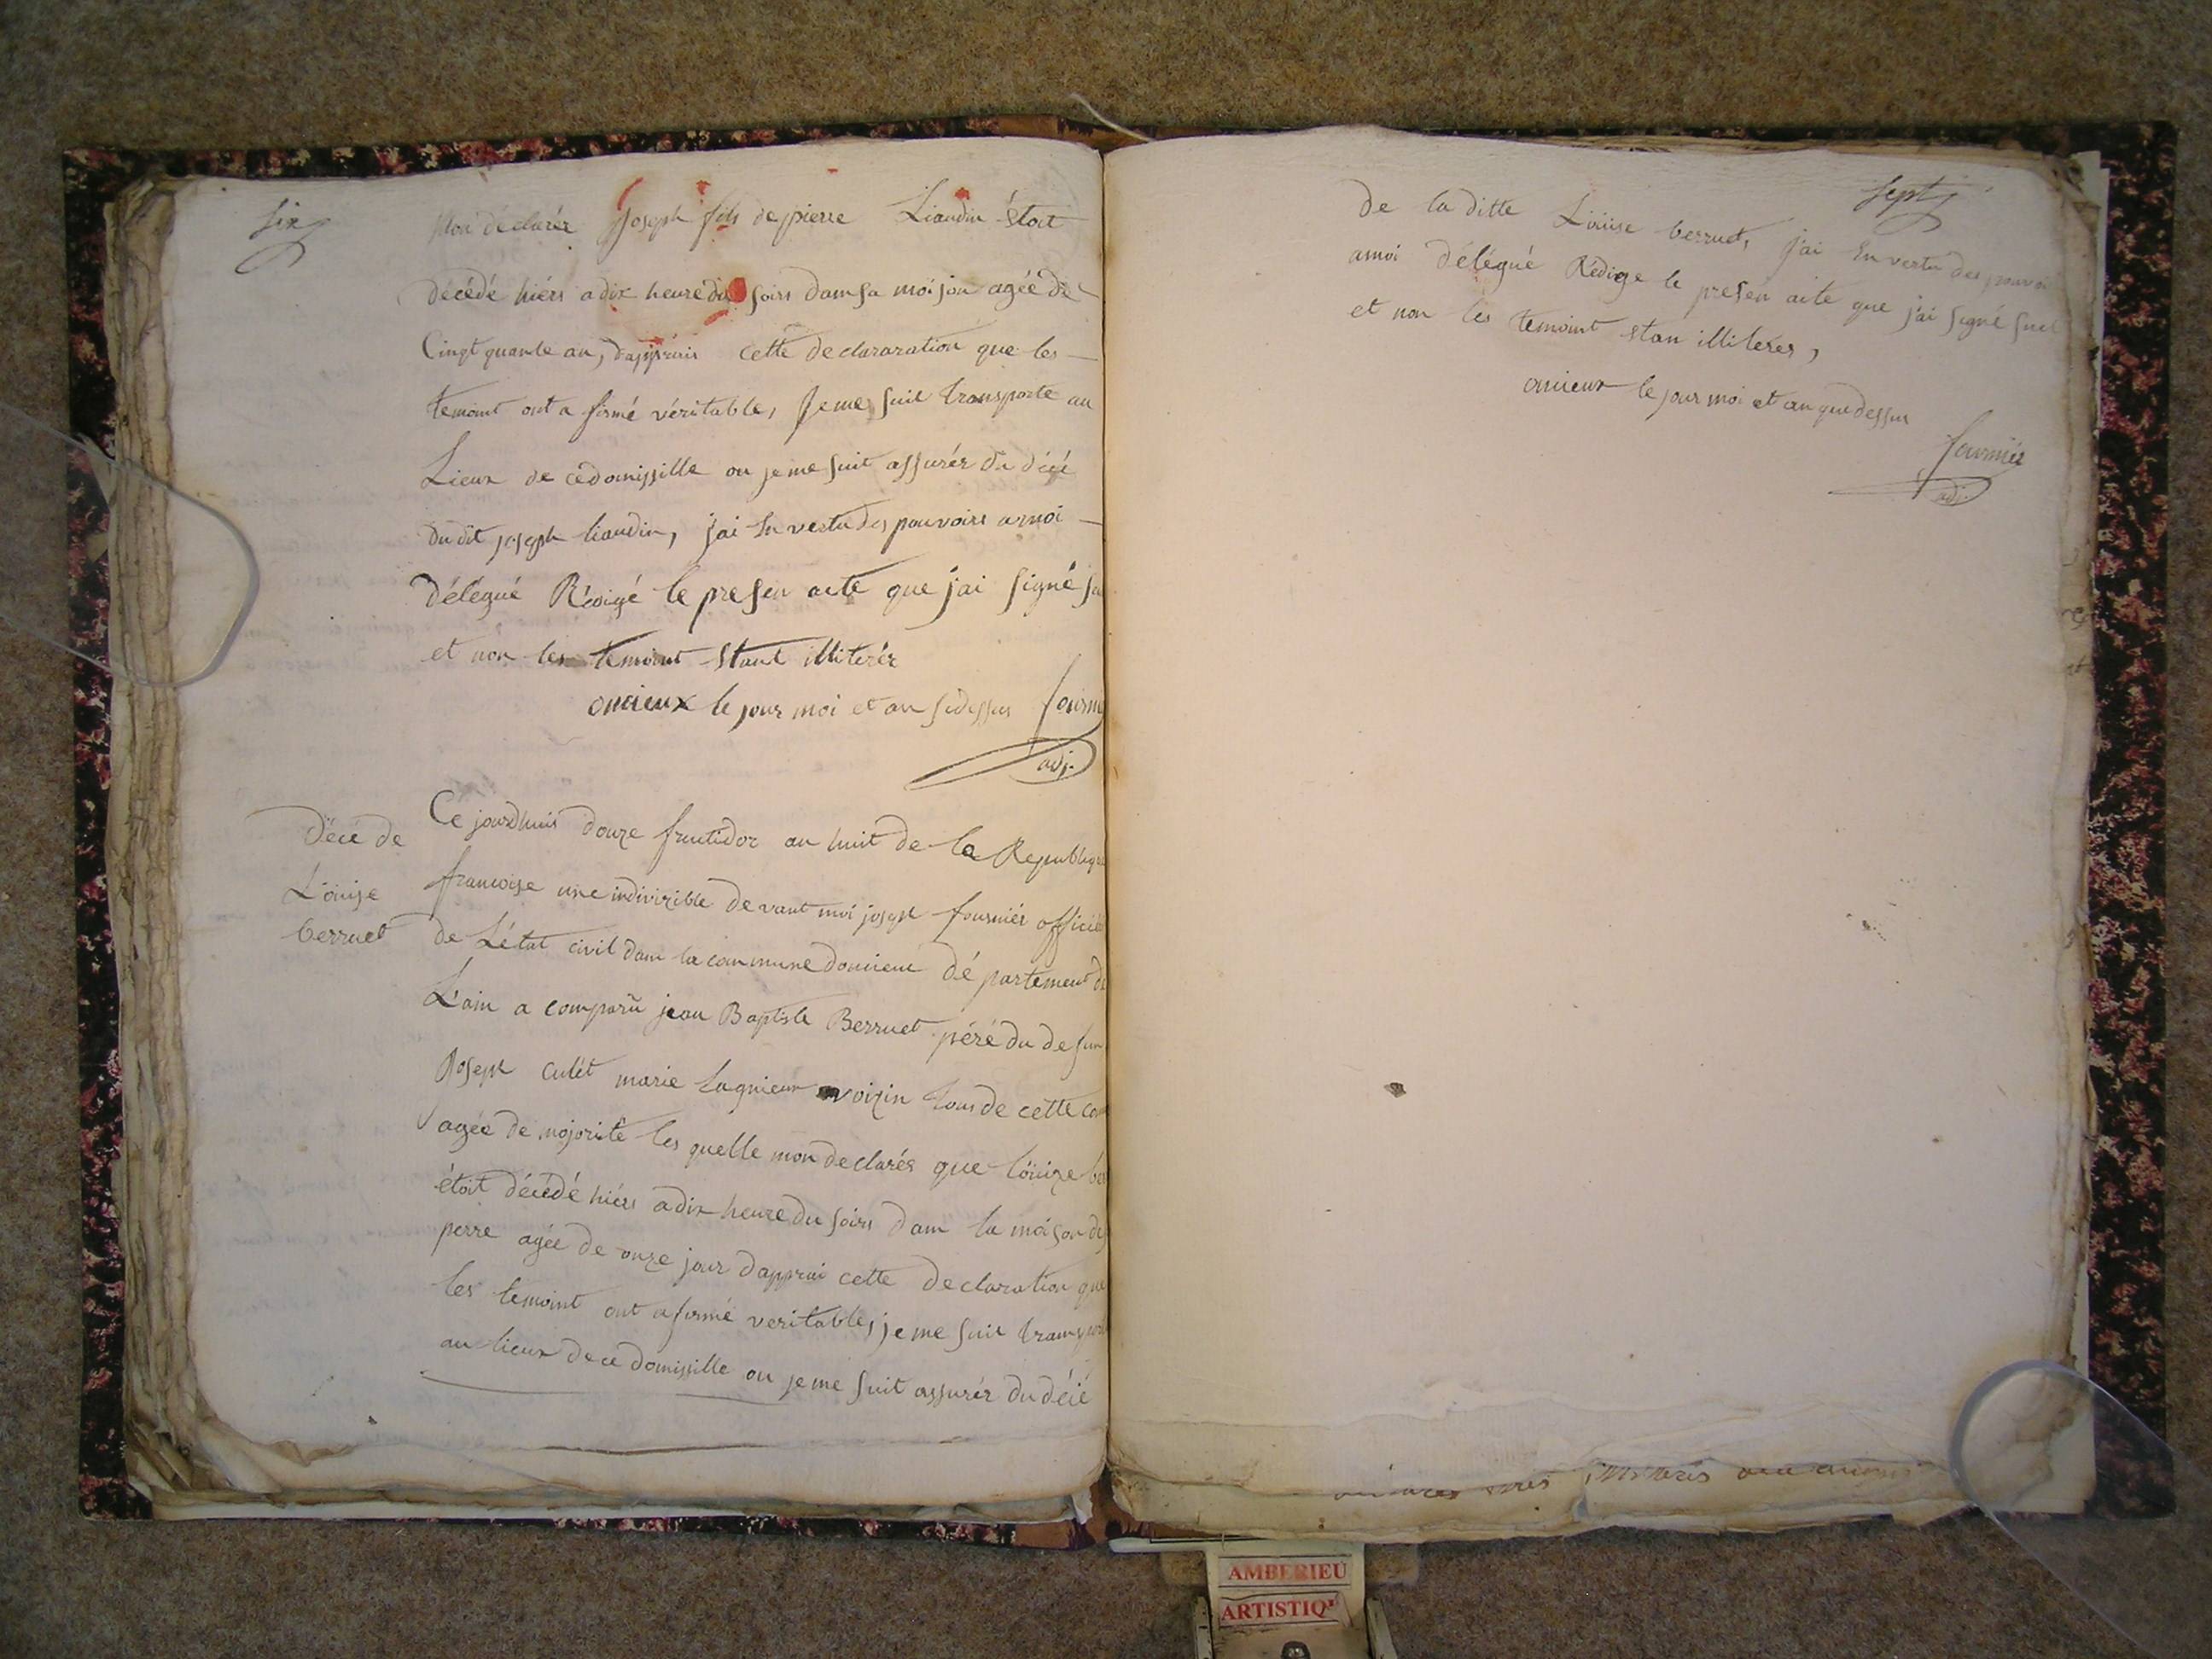 six
mon declarér Joseph fils de pierre Liaudin étoit
décédé hiérs a dix heure du soirs dans sa moison agée de
Cingtquante an, dapprais cette declararation que les
temoint ont a firmé véritable, Je me suit transporte au
Lieux de ce domissille ou je me suit assurér du décé
du dit joseph liaudin, j'ai En vertu des pouvoirs amoi
délégué Rédigé le presen acte que j'ai signé
et non les temoint Etant illiterér
oncieux le jour moi et an sidessus fournié
adj.
Décé de
Löuise
berruet
Ce jourdhuis douze fructidor an huit de la Republique
francoise une indivizible devant moi joseph fourniér officié
de L'état civil dans la commune doncieux département de
L'ain a comparu jean Baptiste Berruet péré du defun
Joseph culét marie lagnieux voizin tous de cette com
agée de mojorité les quelle mon declarés que löuize ber
étoit décédé hiérs a dix heure du soirs dans la moison de
perre agée de onze jour dapprai cette declaration que
les temoint ont a firmé veritable, je me suit transporte
au lieux de ce domissille ou je me suit assurér du décé
sept
de la ditte Löuise berruet, j'ai En vertu des pouvoi
amoi délégué Rédige le presen acte que j'ai signé
et non les temoint Etan illiterer,
oncieux le jour moi et an que dessus
fourniér
adj.
illiteris
AMBERIEU
ARTISTIQ